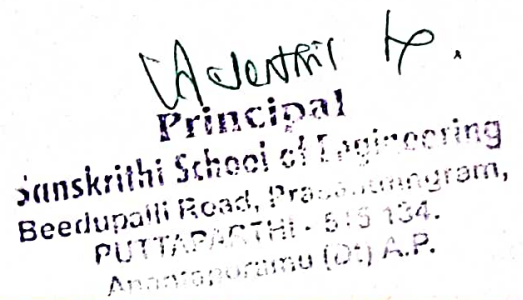 Principal
Sanskrithi School of Engineering
Beedupalli Road, Prasanthinigram,
PUTTAPARTHI - 515 134.
Anantapuramu (Dt) A.P.